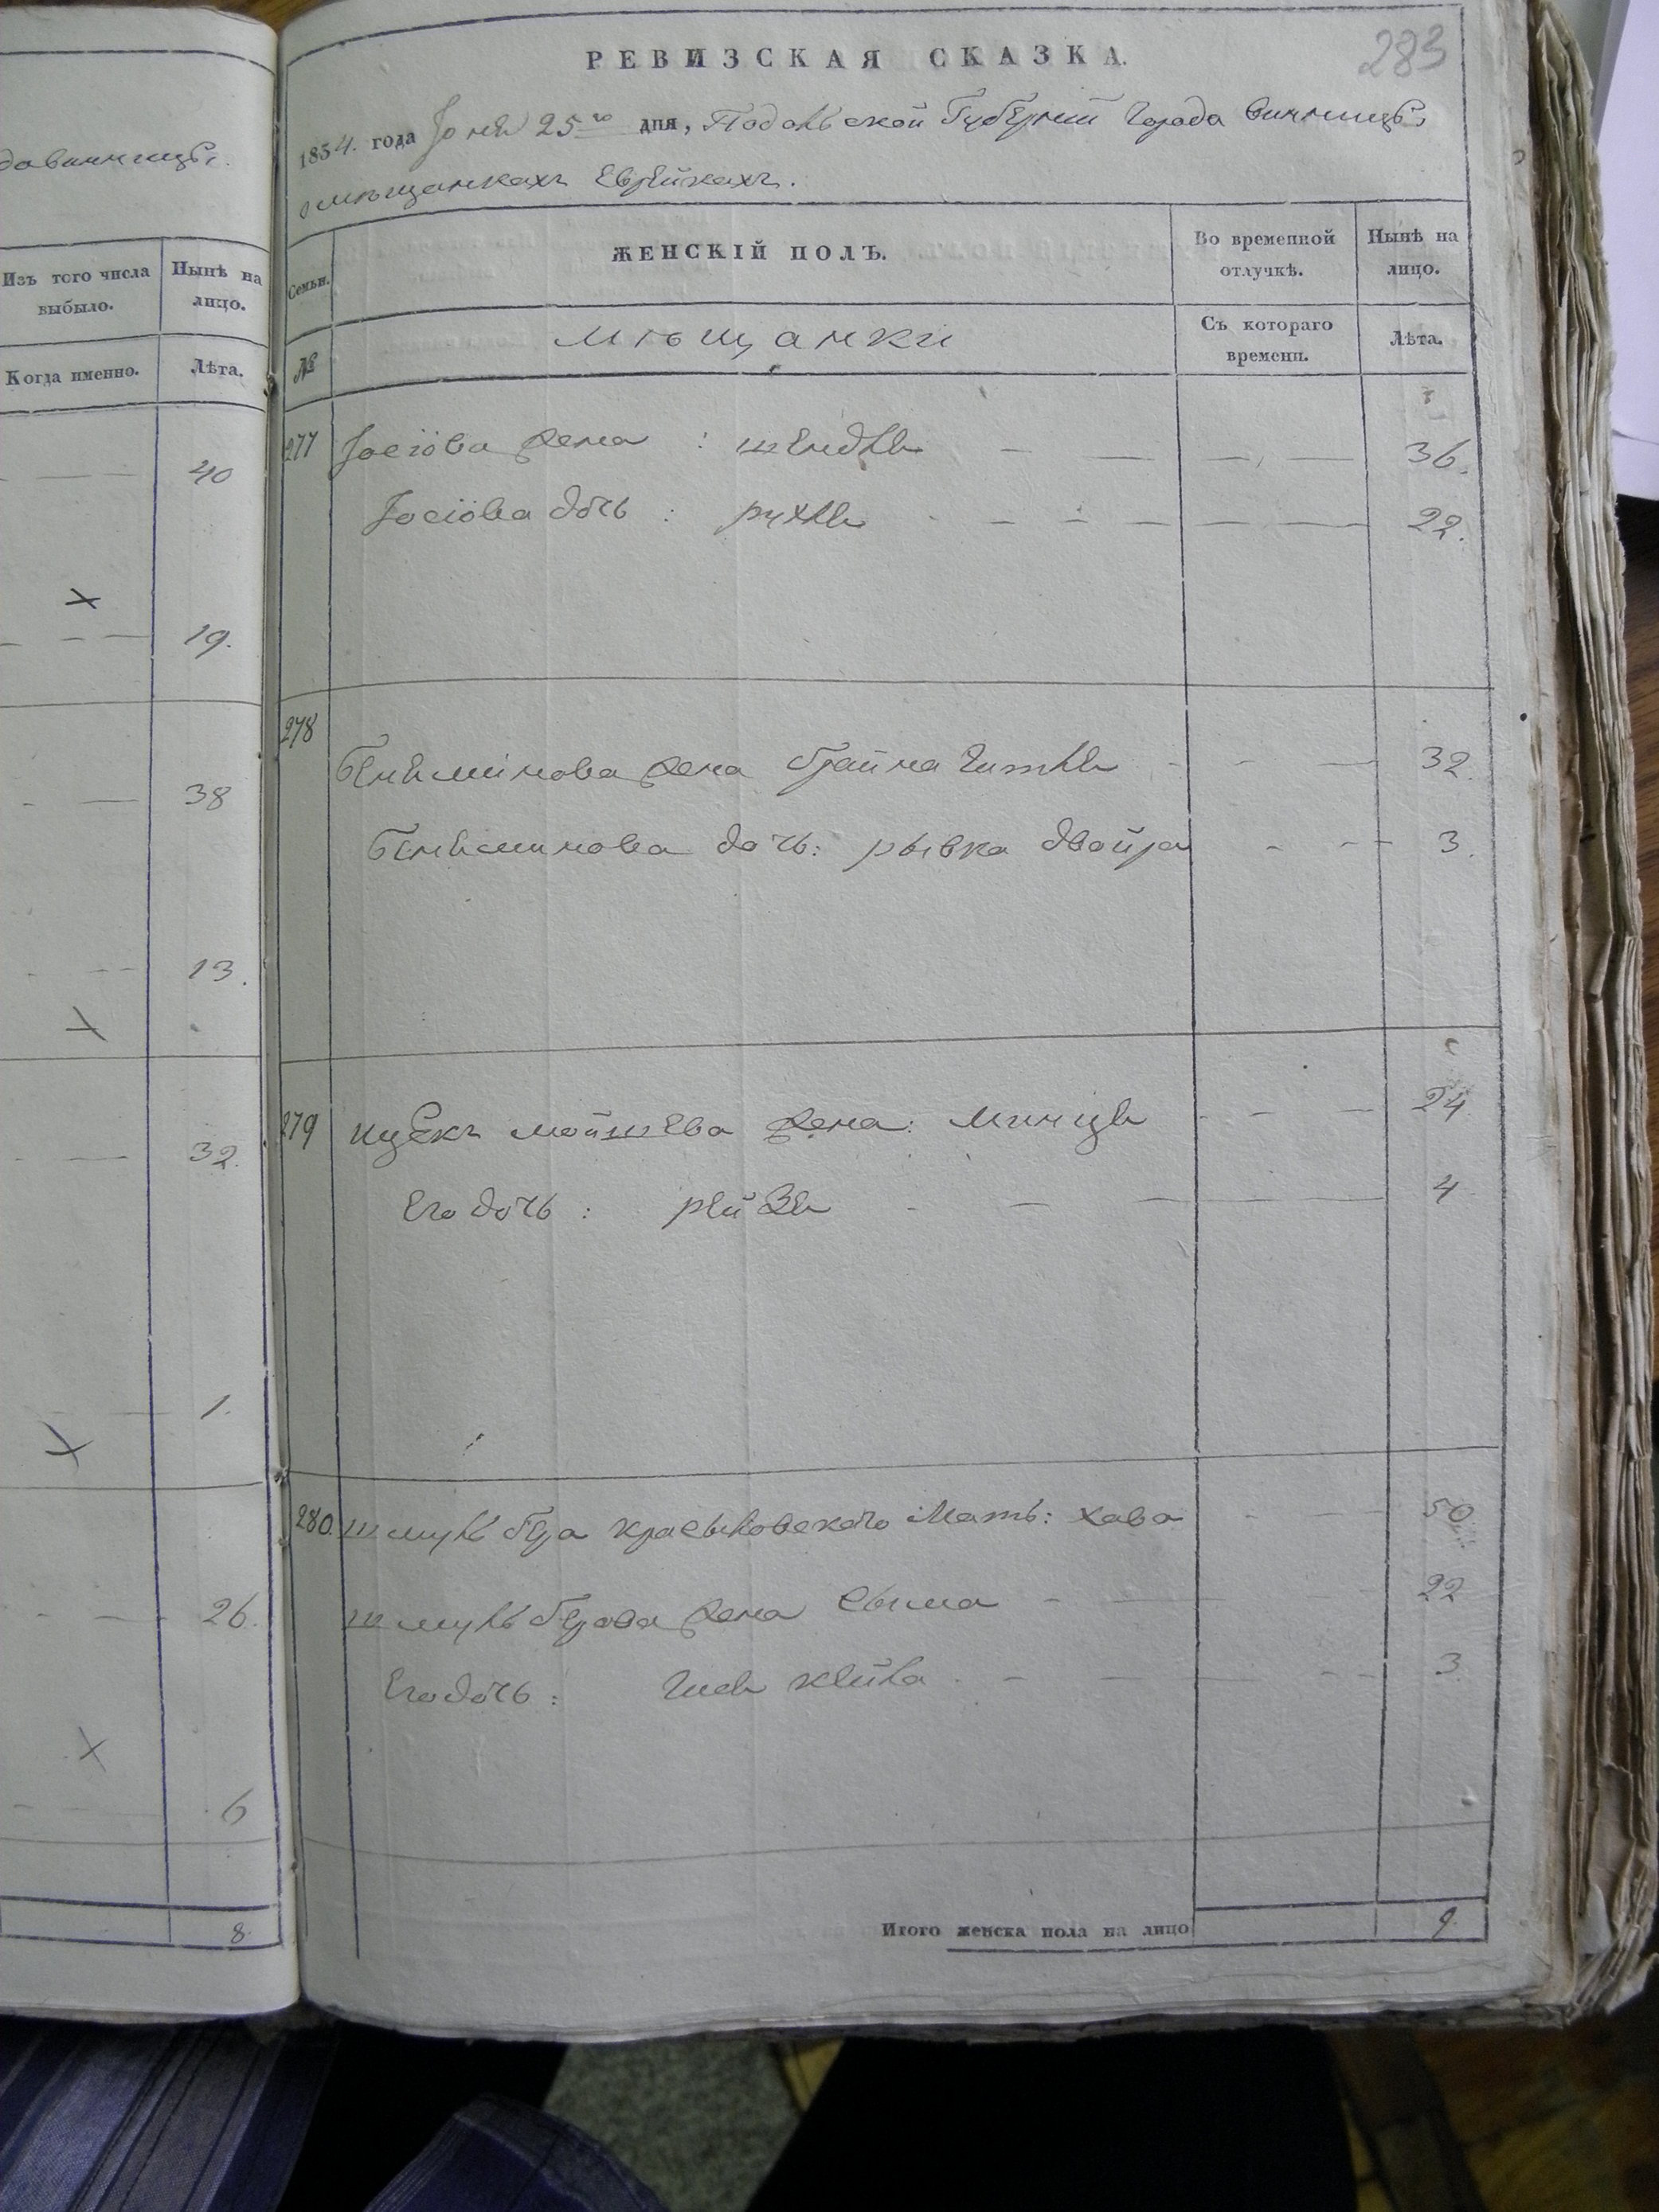 довинницы.
Изъ того числа выбыло.
Нынѣ на лицо.
Когда именно.
Лѣта.
40
19.
38
13.
32.
1.
26.
6
8.
283
РЕВИЗСКАЯ СКАЗКА.
1854. года Іюня 25го дня, Подольской Губерніи Города Винницы,
омѣщанкахъ Еврейкахъ.
Семьи.
ЖЕНСКІЙ ПОЛЪ.
Во временной отлучкѣ.
Нынѣ на лицо.
№
мѣщанки
Съ котораго времени.
Лѣта.
277 Іосіова жена : шендля 36.
Іосіова дочь : рухля 22.
278
Беніамінова жена брайна гитля 32.
Беніаминова дочь: рывка двойра 3.
279 ицекъ мойшева жена: минця 24
Его дочь : рейзя 4
280. шмуль бера красыловского Мать: хава 50
шмуль берова жена сыма 22
Его дочь : кейла 3
Итого женска пола на лицо 9.